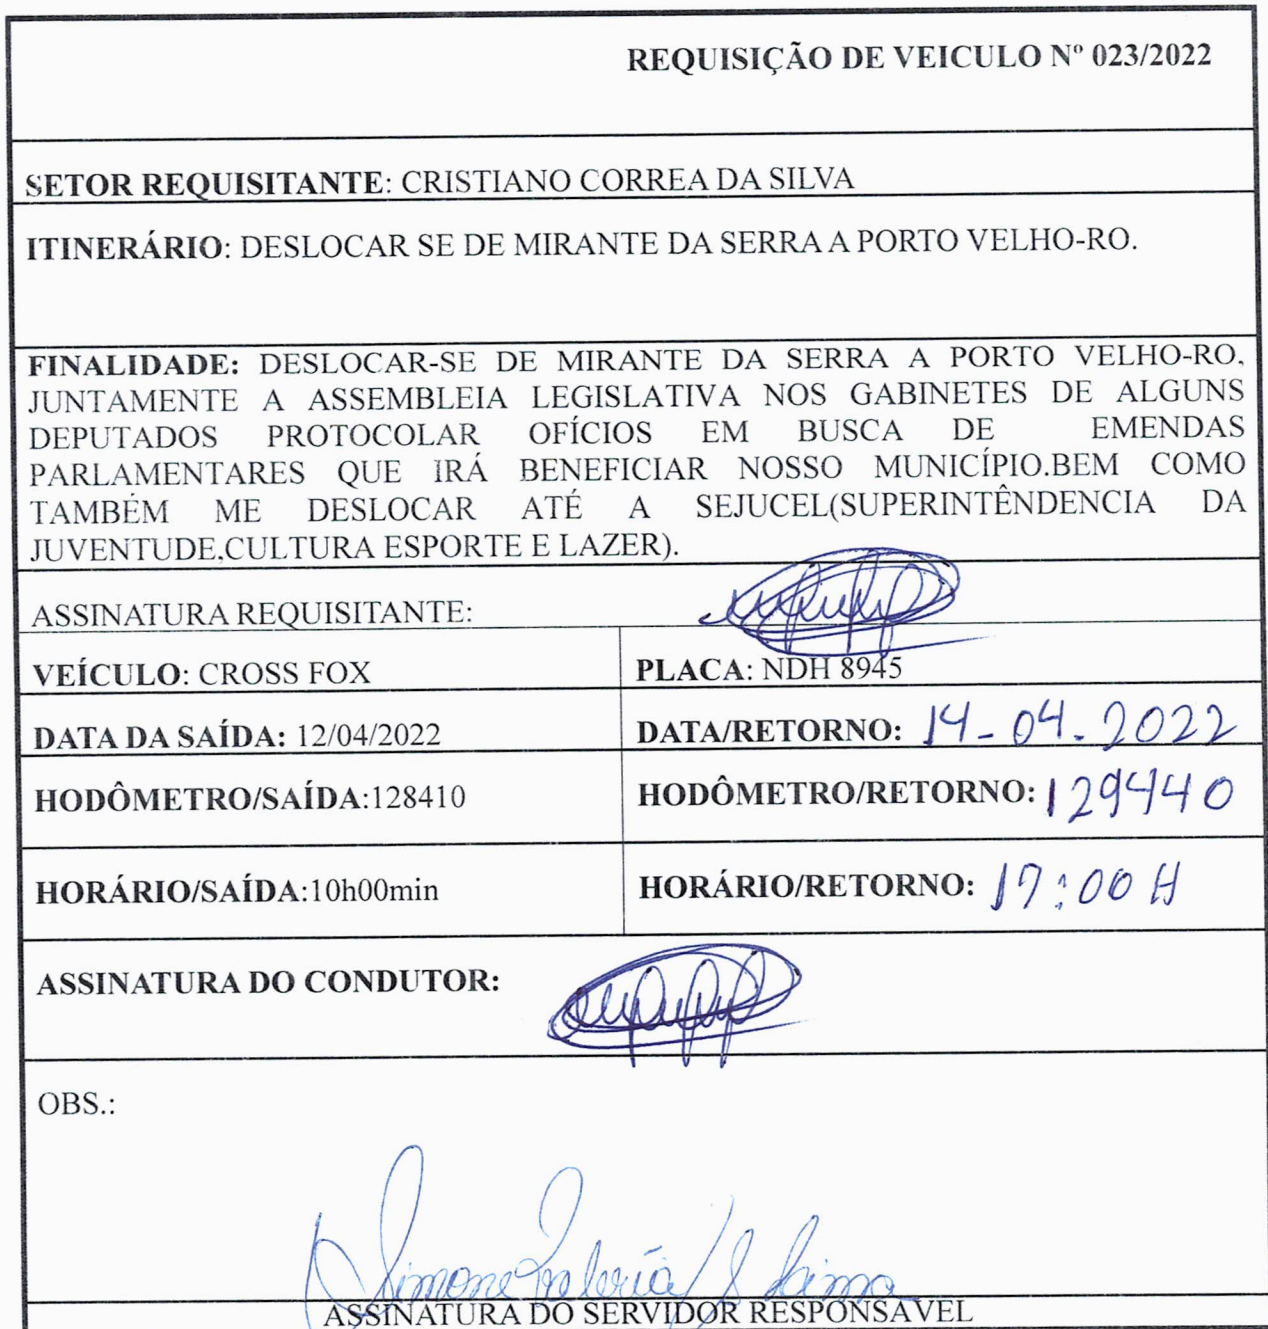 REQUISIÇÃO DE VEICULO Nº 023/2022
SETOR REQUISITANTE: CRISTIANO CORREA DA SILVA
ITINERÁRIO: DESLOCAR SE DE MIRANTE DA SERRA A PORTO VELHO-RO.
FINALIDADE: DESLOCAR-SE DE MIRANTE DA SERRA A PORTO VELHO-RO,
JUNTAMENTE A ASSEMBLEIA LEGISLATIVA NOS GABINETES DE ALGUNS
DEPUTADOS PROTOCOLAR OFÍCIOS EM BUSCA DE EMENDAS
PARLAMENTARES QUE IRÁ BENEFICIAR NOSSO MUNICÍPIO.BEM COMO
TAMBÉM ME DESLOCAR ATÉ A SEJUCEL(SUPERINTÊNDENCIA DA
JUVENTUDE,CULTURA ESPORTE E LAZER).
ASSINATURA REQUISITANTE:
VEÍCULO: CROSS FOX PLACA: NDH 8945
DATA DA SAÍDA: 12/04/2022 DATA/RETORNO: 14-04-2022
HODÔMETRO/SAÍDA:128410 HODÔMETRO/RETORNO: 129440
HORÁRIO/SAÍDA:10h00min HORÁRIO/RETORNO: 17:00 H
ASSINATURA DO CONDUTOR:
OBS.:
Simone Valéria
ASSINATURA DO SERVIDOR RESPONSAVEL